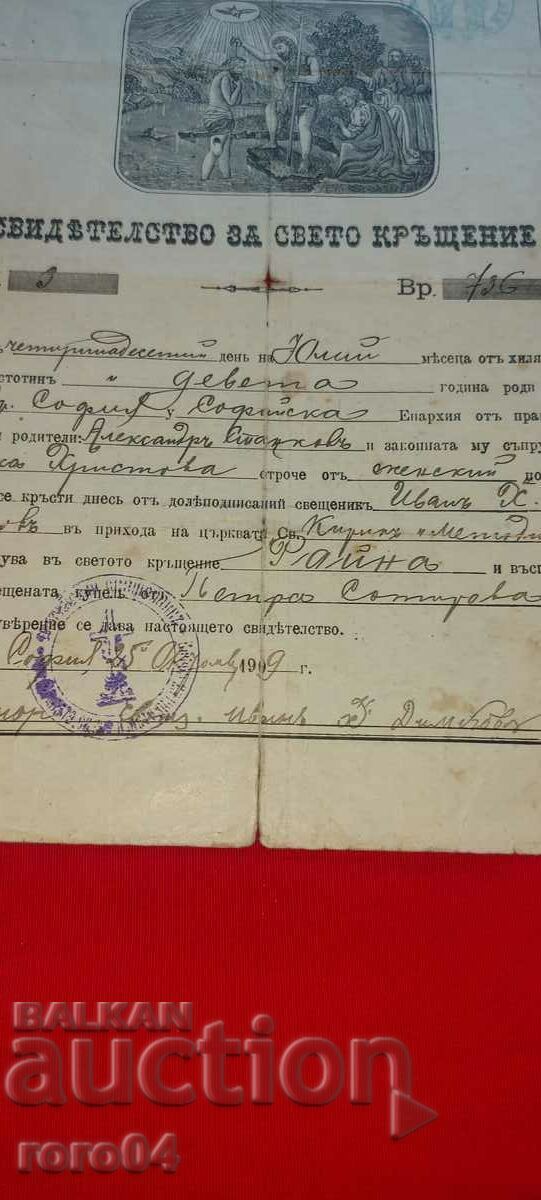 СВИДѢТЕЛСТВО ЗА СВЕТО КРЪЩЕНИЕ
3 Вр. 736
четиринадесетий день на Юлий мѣсеца отъ хиля
стотин " девета година роди
София у Софийска Епархия отъ пра
родители: Александръ и законната му съпру
ка Христова строче отъ женский по
се кръсти днесь отъ долѣподписаний свещеникъ Иванъ Х.
овъ въ прихода на църквата Св. Кирилъ и Методи
ува въ светото кръщение Райна и въсп
ещената купель отъ Петра Сотирова
увѣрение се дава настоящето свидѣтелство.
София 25 1909 г.
Иванъ Х Димковъ
BALKAN
auction
roro04